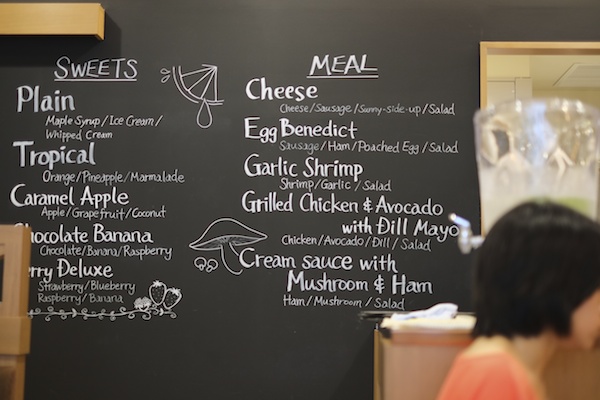 SWEETS
Plain
Maple Syrup / Ice Cream /
Whipped Cream
Tropical
Orange / Pineapple / Marmalade
Caramel Apple
Apple / Grapefruit / Coconut
Chocolate Banana
Chocolate / Banana / Raspberry
erry Deluxe
Strawberry / Blueberry
Raspberry / Banana
MEAL
Cheese
Cheese / Sausage / Sunny-side-up / Salad
Egg Benedict
Sausage / Ham / Poached Egg / Salad
Garlic Shrimp
Shrimp / Garlic / Salad
Grilled Chicken & Avocado
with Dill Mayo
Chicken / Avocado / Dill / Salad
Cream sauce with
Mushroom & Ham
Ham / Mushroom / Salad